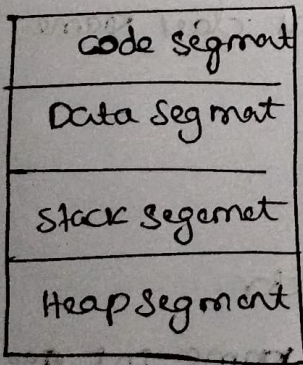 code segmat
Data Segmat
Stack Segemet
Heap Segment